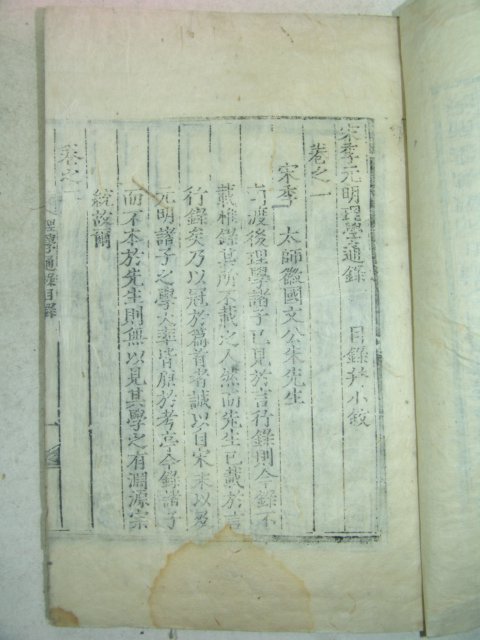 宋季元明理學通錄 目錄幷小敘
卷之一
宋季一 太師徽國文公朱先生
渡後理學諸子已見於言行錄則今錄不
載雖錄其所不載之人然而先生已載於言
行錄矣乃以冠於篇首者誠以自宋末以及
元明諸子之學大率皆原於考亭今錄諸子
而不本於先生則無以見其學之有淵源宗
統故爾
卷之
理學通錄目錄 一